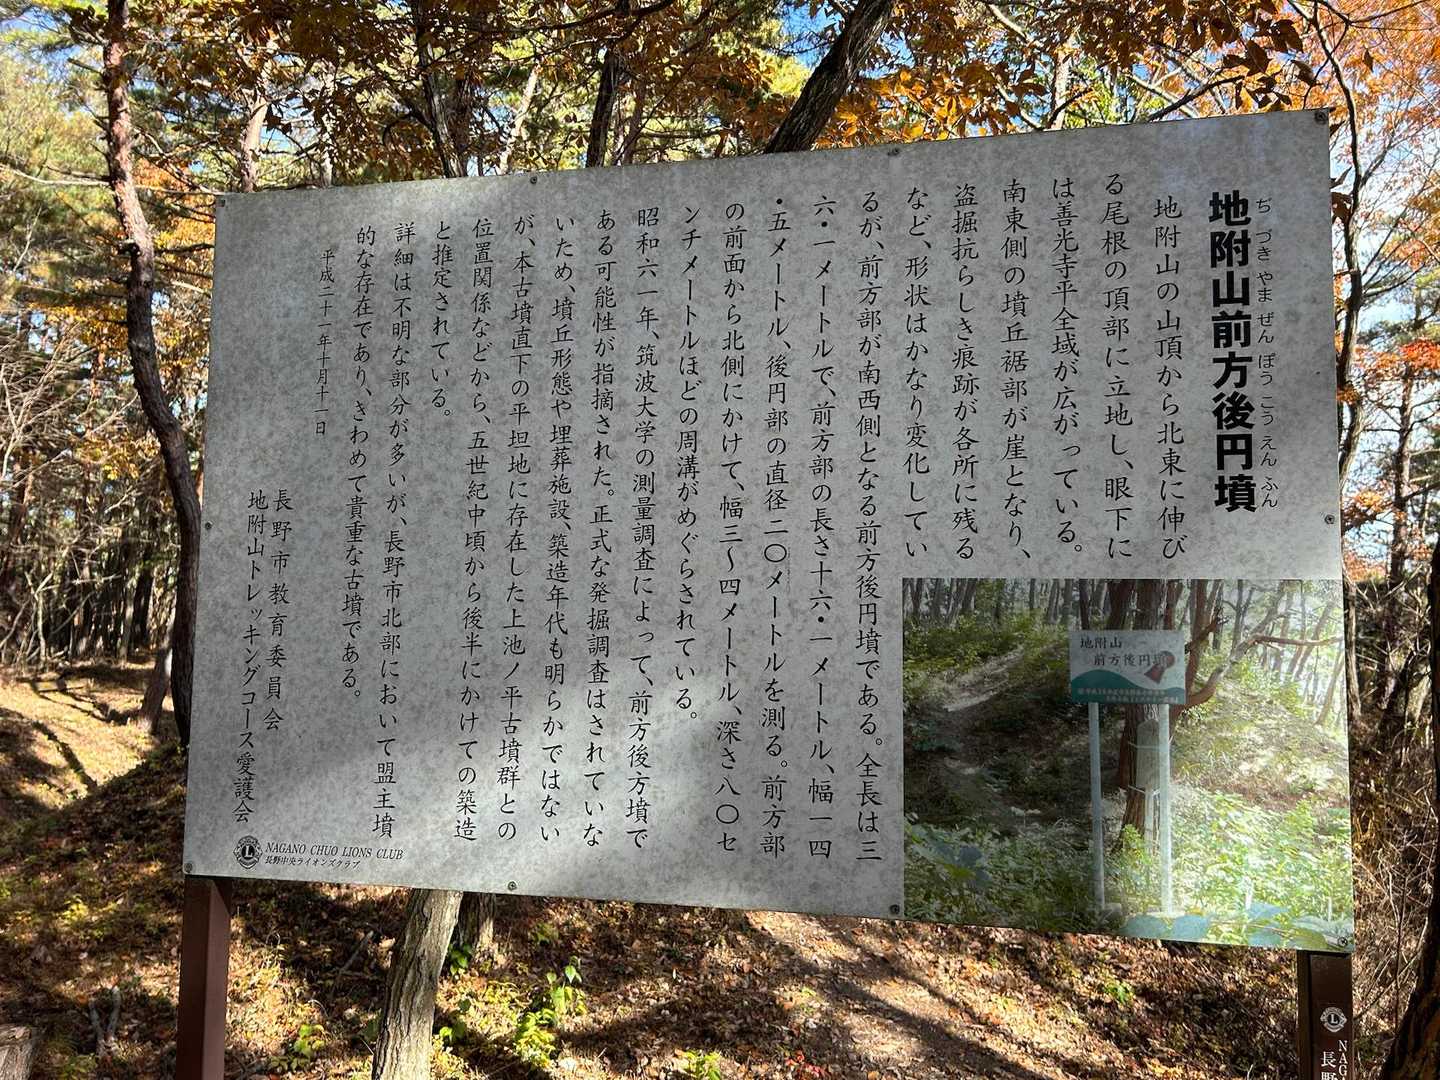 地附山前方後円墳
ぢづきやまぜんぽうこうえんふん
地附山の山頂から北東に伸び
る尾根の頂部に立地し、眼下に
は善光寺平全域が広がっている。
南東側の墳丘裾部が崖となり、
盗掘抗らしき痕跡が各所に残る
など、形状はかなり変化してい
るが、前方部が南西側となる前方後円墳である。全長は三
六・一メートルで、前方部の長さ十六・一メートル、幅一四
・五メートル、後円部の直径二〇メートルを測る。前方部
の前面から北側にかけて、幅三〜四メートル、深さ八〇セ
ンチメートルほどの周溝がめぐらされている。
昭和六一年、筑波大学の測量調査によって、前方後方墳で
ある可能性が指摘された。正式な発掘調査はされていな
いため、墳丘形態や埋葬施設、築造年代も明らかではない
が、本古墳直下の平坦地に存在した上池ノ平古墳群との
位置関係などから、五世紀中頃から後半にかけての築造
と推定されている。
詳細は不明な部分が多いが、長野市北部において盟主墳
的な存在であり、きわめて貴重な古墳である。
平成二十一年十月十一日
長野市教育委員会
地附山トレッキングコース愛護会
NAGANO CHUO LIONS CLUB
長野中央ライオンズクラブ
地附山
前方後円墳
L
NAG
長野